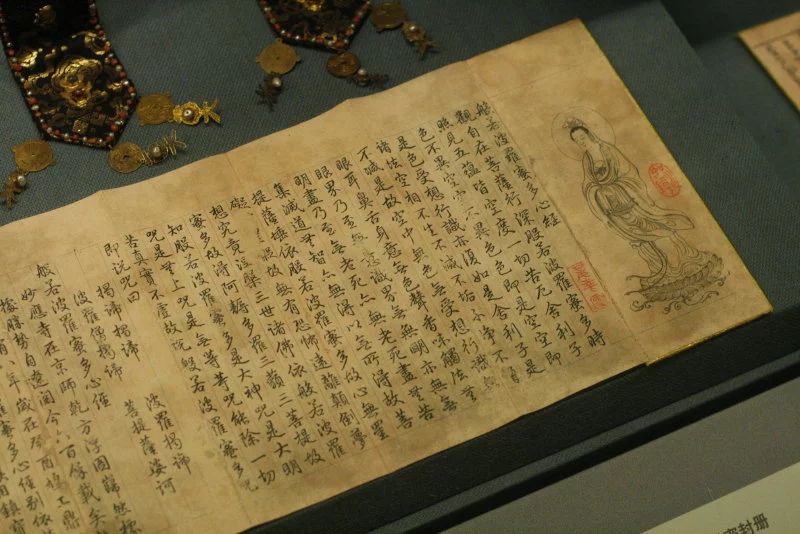 般若波羅蜜多心經
觀自在菩薩行深般若波羅蜜多時
照見五蘊皆空度一切苦厄舍利子
色不異空空不異色色即是空空即
是色受想行識亦復如是舍利子是
諸法空相不生不滅不垢不淨不增
不減是故空中無色無受想行識無
眼耳鼻舌身意無色聲香味觸法無
眼界乃至無意識界無無明亦無無
明盡乃至無老死亦無老死盡無苦
集滅道無智亦無得以無所得故菩
提薩埵依般若波羅蜜多故心無罣
礙無罣礙故無有恐怖遠離顛倒夢
想究竟涅槃三世諸佛依般若波羅
蜜多故得阿耨多羅三藐三菩提故
知般若波羅蜜多是大神呪是大明
呪是無上呪是無等等呪能除一切
苦真實不虛故說般若波羅蜜多呪
即說呪曰
揭諦揭諦 波羅揭諦
波羅僧揭諦 菩提薩婆訶
般若波羅蜜多心經
妙應寺在京師乾方浮圖巋然標
勝勢自遼閱今六百餘載矣
封册